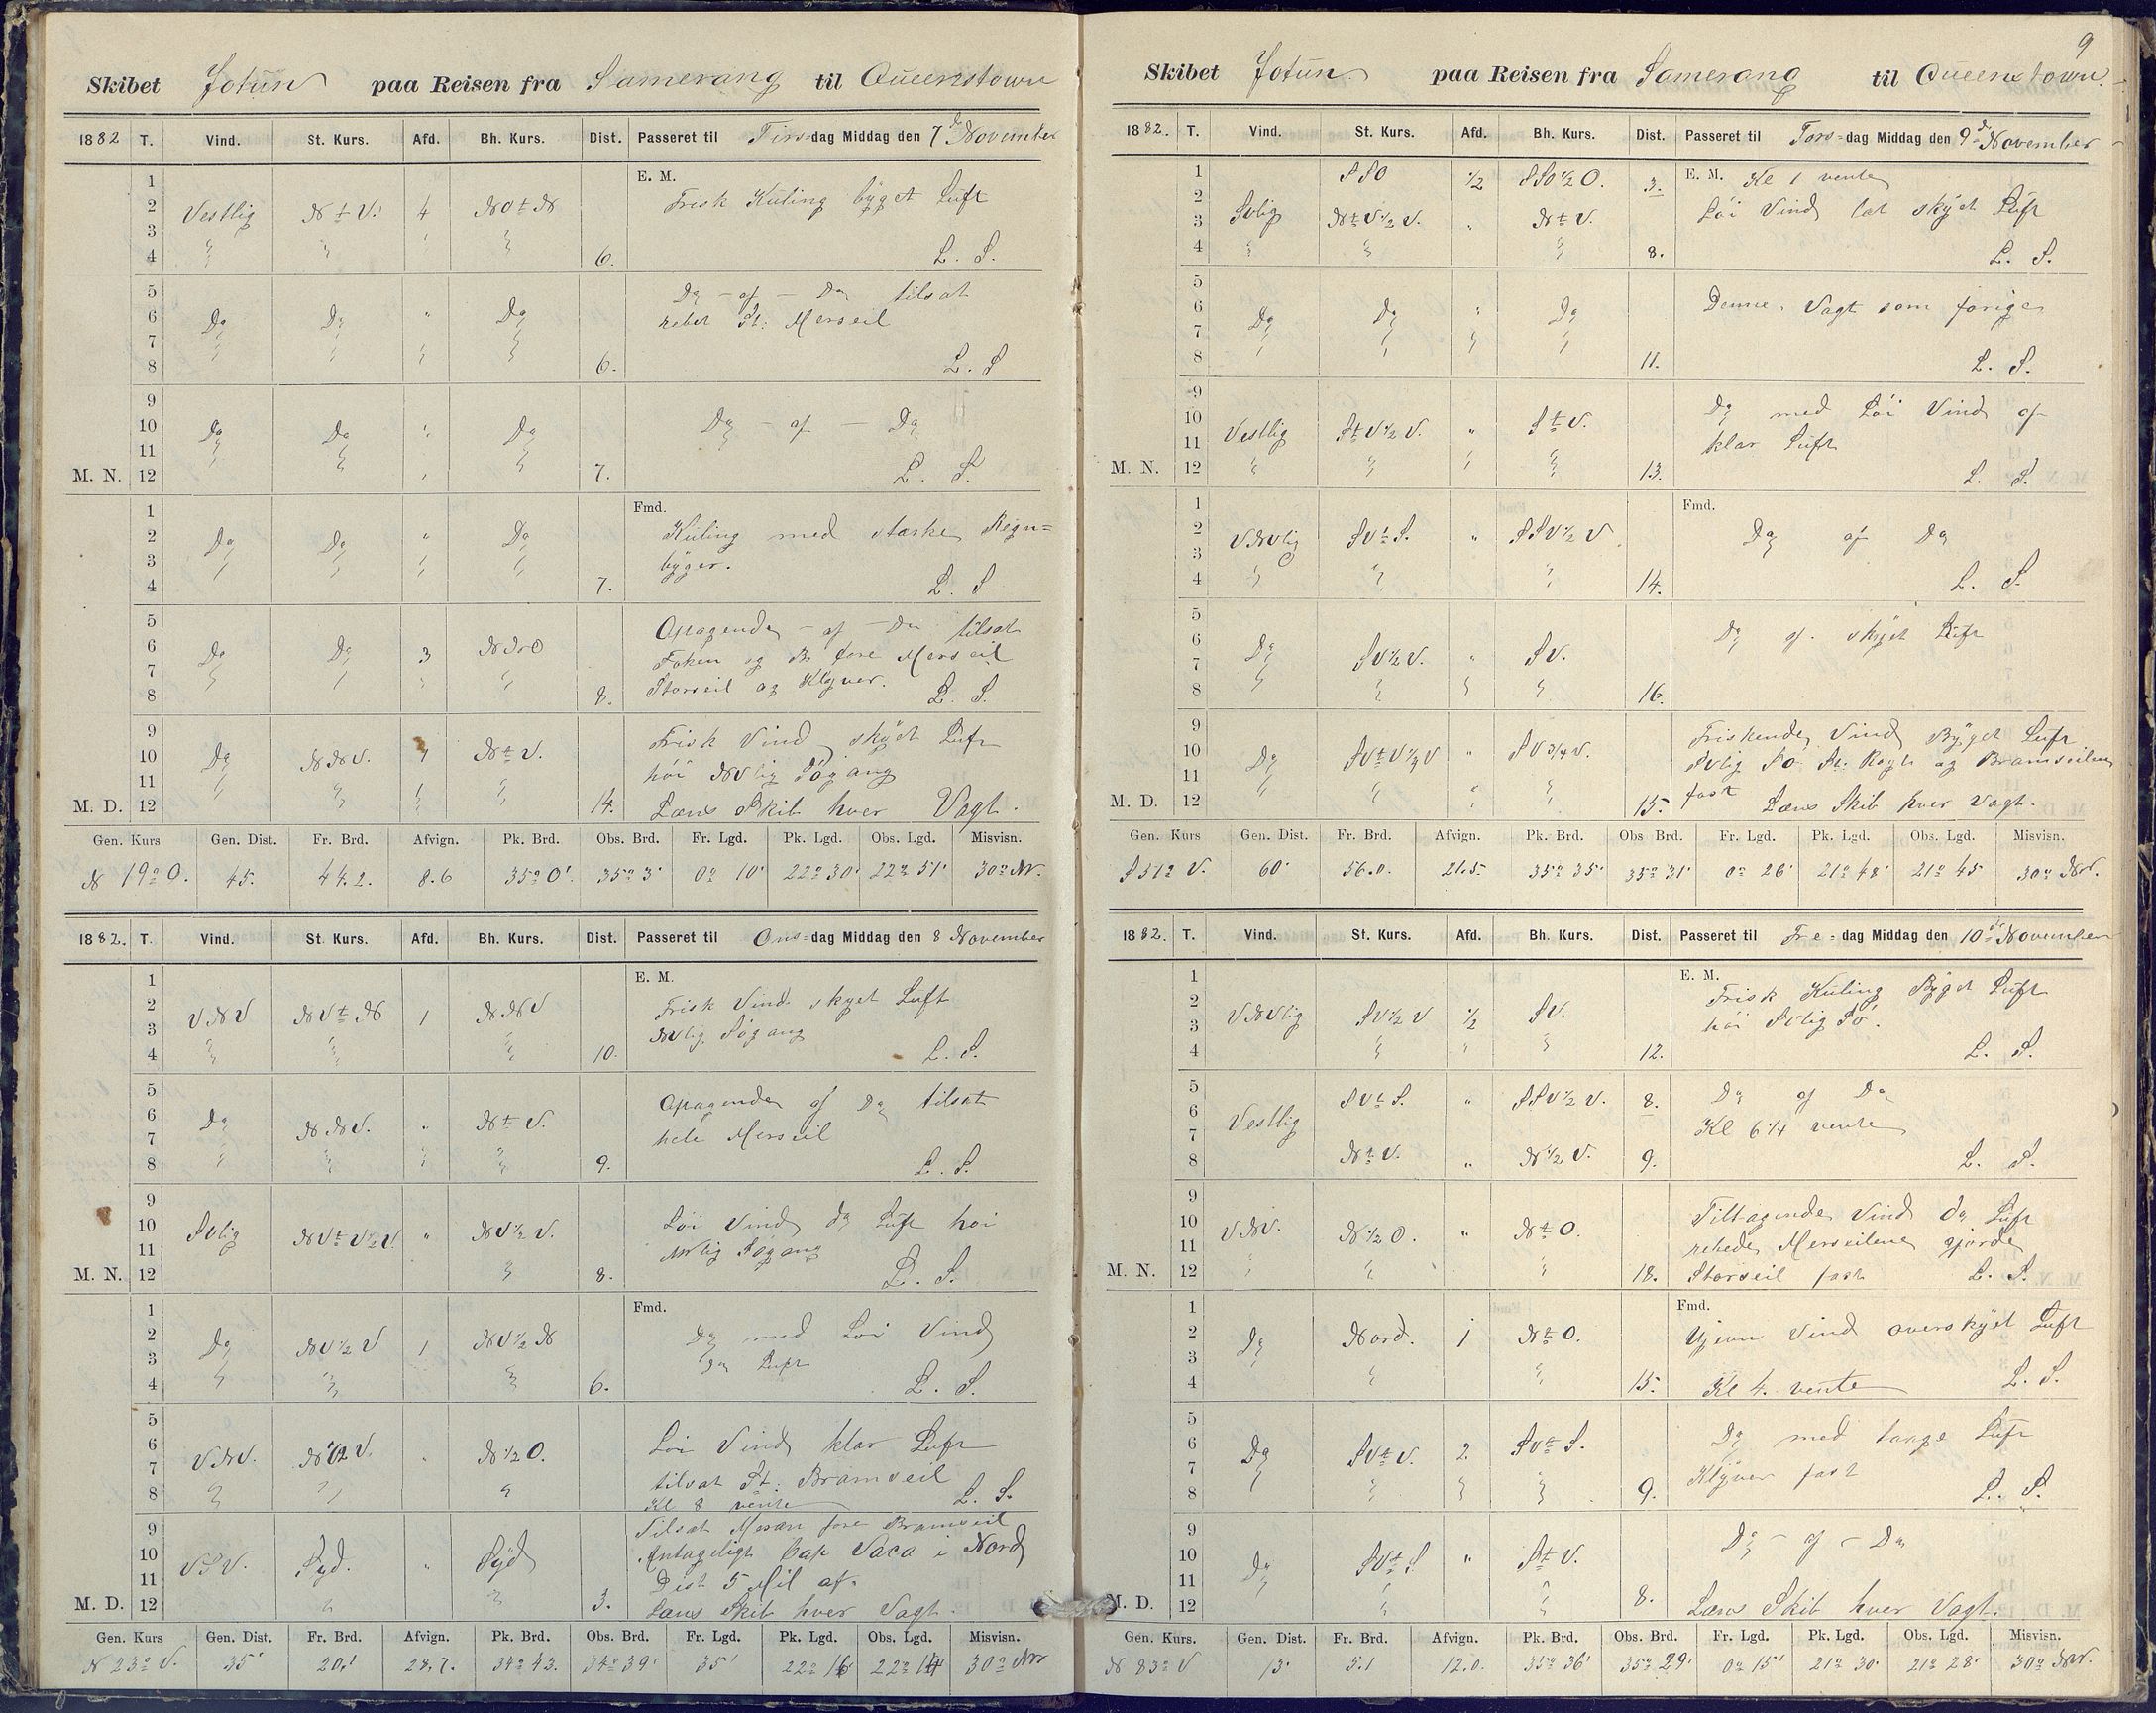 Skibet Jotun paa Reisen fra Samerang til Queenstown
1882 T. Vind. St. Kurs. Afd. Bh. Kurs. Dist. Passeret til Tirsdag Middag den 7de November
E. M.
1
2 Vestlig N t V. 4 NO t N Frisk Kuling byget Luft
3
4 6. L. S.
5 Do - og - Do tilsat
6 Do Do " Do rebet St: Merseil
7
8 6. L. S
9
10 Do Do " Do Do - og - Do
11
M. N. 12 7. L. S.
Fmd.
1
2 Do Do " Do Kuling med stærke Regn=
3 byger.
4 7. L. S.
5 Do - og - Do tilsat
6 Do Do 3 NNO Foken og fore Merseil
7 Storseil og Klyver.
8 8. L. S.
9 Frisk Vind skyet Luft
10 Do NNV. N t V. høi NVlig Søgang
11
M. D. 12 14. Læns Skib hver Vagt.
Gen. Kurs Gen. Dist. Fr. Brd. Afvign. Pk. Brd. Obs. Brd. Fr. Lgd. Pk. Lgd. Obs. Lgd. Misvisn.
N 19° O. 45. 44.2. 8.6 35° 0' 35° 3' 0° 10' 22° 30' 22° 51' 30° NV.
1882. T. Vind. St. Kurs. Afd. Bh. Kurs. Dist. Passeret til Ons=dag Middag den 8 November
E. M.
1
2 VNV NV t N. 1 NNV Frisk Vind skyet Luft
3 NVlig Søgang
4 10. L. S.
5
6 Do NNV. " N t V. og Do tilsat
7 hele Merseil
8 9. L. S.
9
10 SVlig " NV 1/2 V. Løi Vind do Luft høi
11 NVlig Søgang
M. N. 12 8. L. S.
Fmd.
1
2 Do NV 1/2 V 1 NV 1/2 N Do med Løi Vind
3 Do Luft
4 6. L. S.
5
6 VNV. N 1/2 V. " N 1/2 O. Løi Vind klar Luft
7 tilsat St. Bramseil
8 Kl 8 vente L. S.
9 Tilsat Mesan fore Bramseil
10 VSV. Syd. " Syd Antageligt Cap Vaca i Nord
11 Dist 5 Mil af.
M. D. 12 3. Læns Skib hver Vagt.
Gen. Kurs Gen. Dist. Fr. Brd. Afvign. Pk. Brd. Obs. Brd. Fr. Lgd. Pk. Lgd. Obs. Lgd. Misvisn.
N 23° V. 35' 20.1 28.7. 34° 43. 34° 39' 35' 22° 16 22° 14 30° NV
9
Skibet Jotun paa Reisen fra Samerang til Queenstown.
1882. T. Vind. St. Kurs. Afd. Bh. Kurs. Dist. Passeret til Tors=dag Middag den 9de November
1 SSO 1/2 SSO 1/2 O. 3. E. M. Kl 1 vente
2 Løi Vind let skyet Luft
3 SVlig N t V 1/2 V. " N t V.
4 8. L. S.
5
6 Do Do " Do Denne Vagt som forige
7
8 11. L. S.
9
10 Vestlig S t V 1/2 V. " S t V. Do med Løi Vind og
11 klar Luft
M. N. 12 13. L. S.
Fmd.
1
2 VNVlig SV t S. " SSV 1/2 V Do og Do
3
4 14. L. S.
5
6 Do SV 1/2 V. " SV. Do og skyet Luft
7
8 16.
9 Friskende Vind Byget Luft
10 Do " SV 3/4 V. SVlig Sø St. Røyl og Bramseilene
11 fast
M. D. 12 15. Læns Skib hver Vagt.
Gen. Kurs Gen. Dist. Fr. Brd. Afvign. Pk. Brd. Obs Brd. Fr. Lgd. Pk. Lgd. Obs. Lgd. Misvisn.
S 51° V. 60' 56.0. 21.5. 35° 35' 35° 31' 0° 26' 21° 48' 21° 45 30° NV.
1882. T. Vind. St. Kurs. Afd. Bh. Kurs. Dist. Passeret til Fre=dag Middag den 10de November
E. M.
1
2 VNVlig SV 1/2 V 1/2 SV. Frisk Kuling Byget Luft
3 høi SVlig Sø.
4 12. L. S.
5 SV t S. " SSV 1/2 V. 8. Do og Do
6 Vestlig Kl 6 1/4 vente
7
8 N t V. " N 1/2 V. 9. L. S.
9 Tiltagende Vind do Luft
10 VNV. N 1/2 O. " N t O. rebede Merseilene gjorde
11
M. N. 12 18. Storseil fast L. S.
Fmd.
1
2 Do Nord. 1 N t O. Ujevn Vind overskyet Luft
3
4 15. Kl 4. vente L. S.
5
6 Do SV t V. 2. SV t S. Do med taage Luft
7 Klyver fast
8 9. L. S.
9
10 Do SV t S " S t V. Do - og - Do
11
M. D. 12 8. Læns Skib hver Vagt.
Gen. Kurs. Gen. Dist. Fr. Brd. Afvign. Pk. Brd. Obs. Brd. Fr. Lgd. Pk. Lgd. Obs. Lgd. Misvisn.
N 83° V 13' 5.1 12.0. 35° 36' 35° 29' 0° 15' 21° 30' 21° 28' 30° NV.